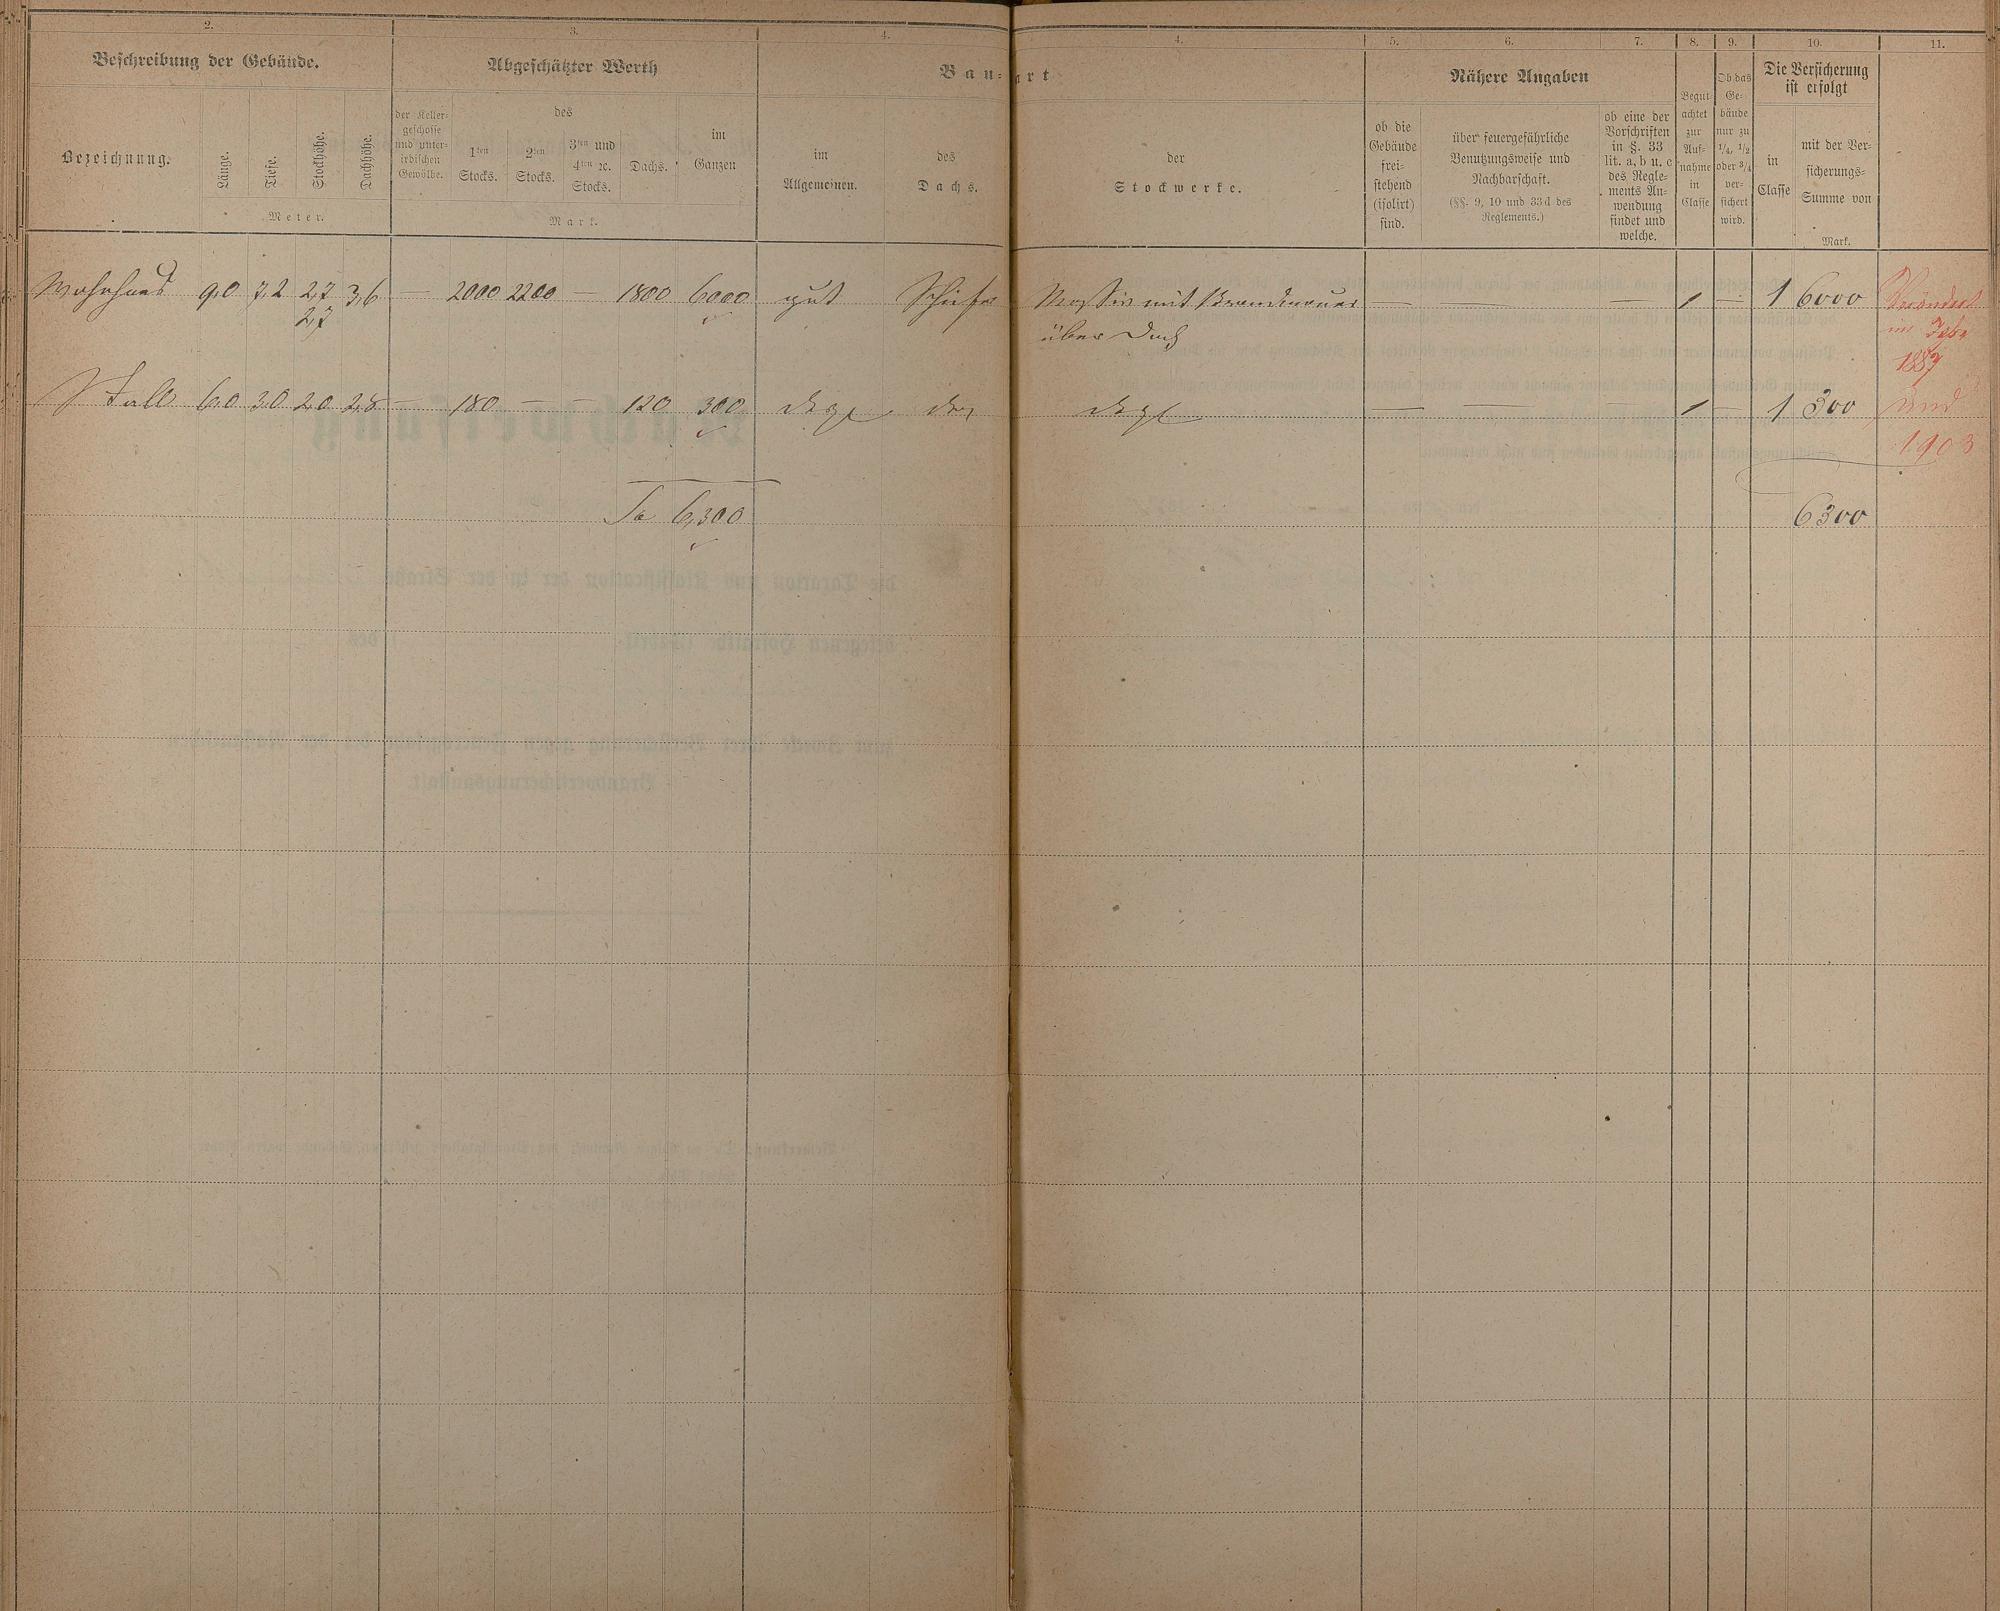 2. 3. 4. 4. 5. 6. 7. 8. 9. 10. 11.
Beschreibung der Gebäude. Abgeschätzter Werth Bau-art Nähere Angaben
Begut-achtet zur Auf-nahme in Classe
Ob das Ge-bäude nur zu 1/4, 1/2 oder 3/4 ver-sichert wird.
Die Versicherung ist erfolgt
Bezeichnung. Länge. Tiefe. Stockhöhe. Dachhöhe.
Meter.
der Keller-geschosse und unter-irdischen Gewölbe.
des
1ten Stocks. 2ten Stocks. 3ten und 4ten ec. Stocks. Dachs.
im Ganzen
Mark.
im Allgemeinen.
des Dachs.
der Stockwerke.
ob die Gebäude frei-stehend (isolirt) sind.
über feuergefährliche Benutzungsweise und Nachbarschaft.
(§§. 9, 10 und 33d des Reglements.)
ob eine der Vorschriften in §. 33 lit. a, b u. c des Regle-ments An-wendung findet und welche.
in Classe
mit der Ver-sicherungs-Summe von
Mark.
Wohnhaus 9,0 7,2 2,7 3,6 — 2000 2200 — 1800 6000 gut Schiefer Massiv mit Brandmauer — — — 1 — 1 6000 Verändert
2,7 über Dach im Jahr
1887
Stall 6,0 3,0 2,0 2,8 — 180 — — 120 300 desgl. des desgl — — — 1 — 1 300 und
1903
Sa 6,300 6300